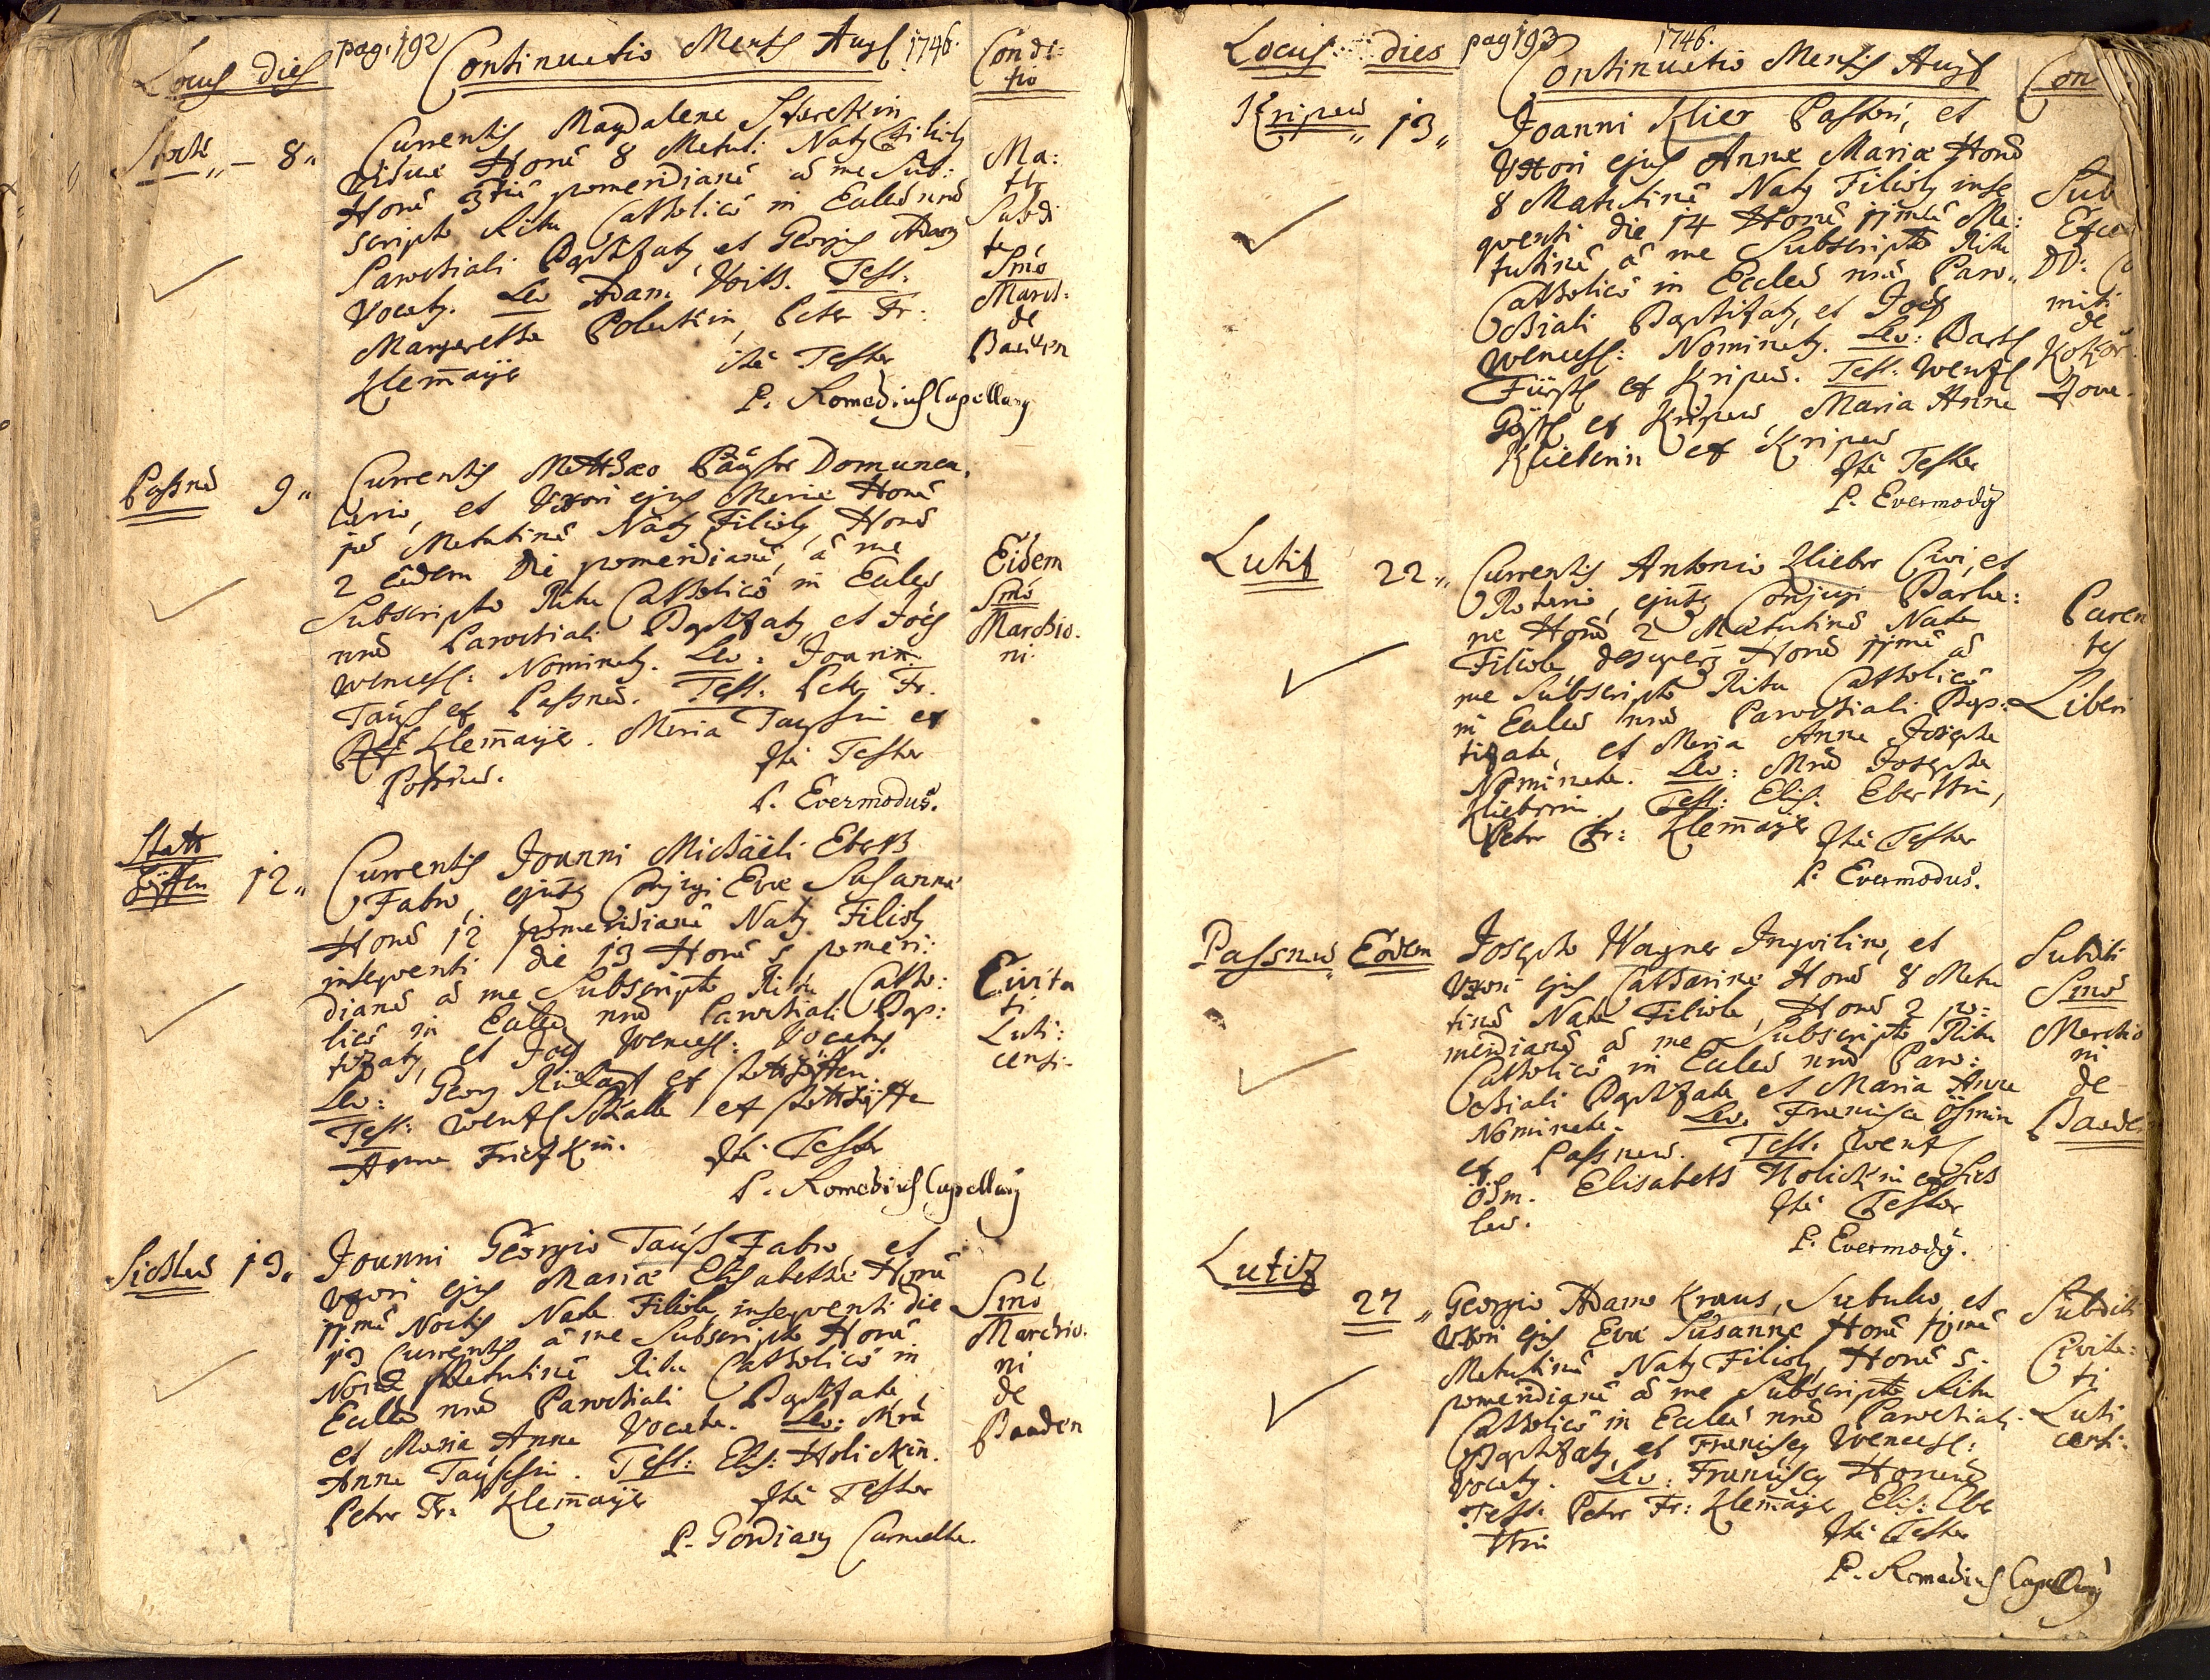 Locus dies pag. 192 Continuatio Mensis Aug 1746. Condi:
tio
8 Currentis Magdalena
Viduae Horâ 8 Matut: Natus Filiolus
Horâ 3tiâ pomeridianâ â me Sub:
scripto Ritu Catholicô in Ecclesiâ nrâ
Parochiali Baptizatus, et Georgius Adam
Vocatus. Lev: Adam Voith. Test:
Margaretha Poleckin, Peter Fr:
Klem̄aÿer
ita Testor
P. Romedius Capellanus
Ma:
ter
Subdi
ta
Smo
March:
de
Baaden
Passnâ 9 Currentis Matthaeo Taÿss Domunca,
lario, et Uxori ejus Mariae Horâ
1mâ Matutinâ Natus Filiolus, Horâ
2 eâdem die pomeridianâ, â me
Subscripto Ritu Catholicô in Ecclesiâ
nrâ Parochiali Baptizatus, et Joës
Wencesl: Nominatus. Lev: Joann:
Taÿss ex Passnâ. Test: Petrus Fr.
Klem̄aÿer. Maria Taÿssin ex
Passnâ.
Ita Testor
P. Evermodus.
Eidem
Smo
Marchio.
ni.
12 Currentis Joanni Michaëli Eberth
Fabro, ejusque Conjugi Evae Susannae
Horâ 12 pomeridianâ Natus Filiolus
insequenti die 13 Horâ 5 pomeri:
dianâ â me Subscripto Ritu Catho:
licô in Ecclesiâ nrâ Parochiali Bap:
tizatus, et Joës Wencesl: Vocatus.
Lev: Georg
Test: Wenzl
Anna Fritzkin.
Ita Testor
P. Romedius Capellanus
Civita
ti
Luti:
censi.
Sichlau 19 Joanni Georgio Taÿss Fabro, et
Uxori ejus Mariae Elisabethae Horâ
11mâ Noctis Nata Filiola, insequenti die
Currentis â me Subscripto Horâ
Nonâ Matutinâ Ritu Catholicô in
Ecclesiâ nrâ Parochiali Baptizata,
et Maria Anna Vocata. Lev: Mra
Anna Taÿssin. Test: Elis: Holickin.
Petrus Fr: Klem̄aÿer
Ita Testor
P. Gordianus Carmelita.
Smo
Marchio.
ni
de
Baaden
Locus dies pag 193 1746. Continuatio Mensis Aug Con
Kripau 13 Joanni Klier Pastori, et
Uxori ejus Annae Mariae Horâ
8 Matutinâ Natus Filiolus inse
quenti die 14 Horâ 11mâ Ma:
tutinâ â me Subscripto Ritu
Catholicô in Ecclesiâ nrâ Paro
chiali Baptizatus, et Joës
Wencesl: Nominatus. Lev: Barth
Fürst ex Kripau. Test: Wenzl
ex Kripau Maria Anna
Klieberin ex Kripau
Ita Testor
P. Evermodus
Sub
DD: Co
miti
de
Lutitz 22 Currentis Antonio Klieber Civi, et
Rotario, ejusque Conjugi Barba:
rae Horâ 2 Matutinâ Nata
Filiola, Horâ 11mâ â
me Subscripto Ritu Catholicô
in Ecclesiâ nrâ Parochiali Bap:
tizata, et Maria Anna Josepha
Nominata. Lev: Mra Josepha
Klieberin, Test: Elis. Eberthin,
Petrus Fr: Klem̄aÿer
Ita Testor
P. Evermodus.
Paren
tes
Liberi
Passnau Eodem Josepho Wagner Inquilino, et
Uxori ejus Catharinae Horâ 8 Matu
tinâ Nata Filiola, Horâ 2 po:
meridianâ â me Subscripto Ritu
Catholicô in Ecclesiâ nrâ Paro:
chiali Baptizata et Maria Anna
Nominata. Lev. Francisca Ösmin
ex Passnau. Test: Wenzl
Ösm. Elisabeth Holickin ex Sich
lau.
Ita Testor
P. Evermodus.
Subditi
Smo
Marchio
ni
de
Baade
Lutitz
27 Georgio Adamo Kraus, Subulco, et
Uxori ejus Evae Susannae Horâ
Matutinâ Natus Filiolus, Horâ 5.
pomeridianâ â me Subscripto Ritu
Catholicô in Ecclesiâ nrâ Parochiali
Baptizatus, et Franciscus Wencesl:
Vocatus. Lev: Franciscus
Test: Petrus Fr: Klem̄aÿer, Elis: Eber
thin
Ita Testor
P. Romedius Capellanus
Subditi
Civita:
ti
Luti
censi.